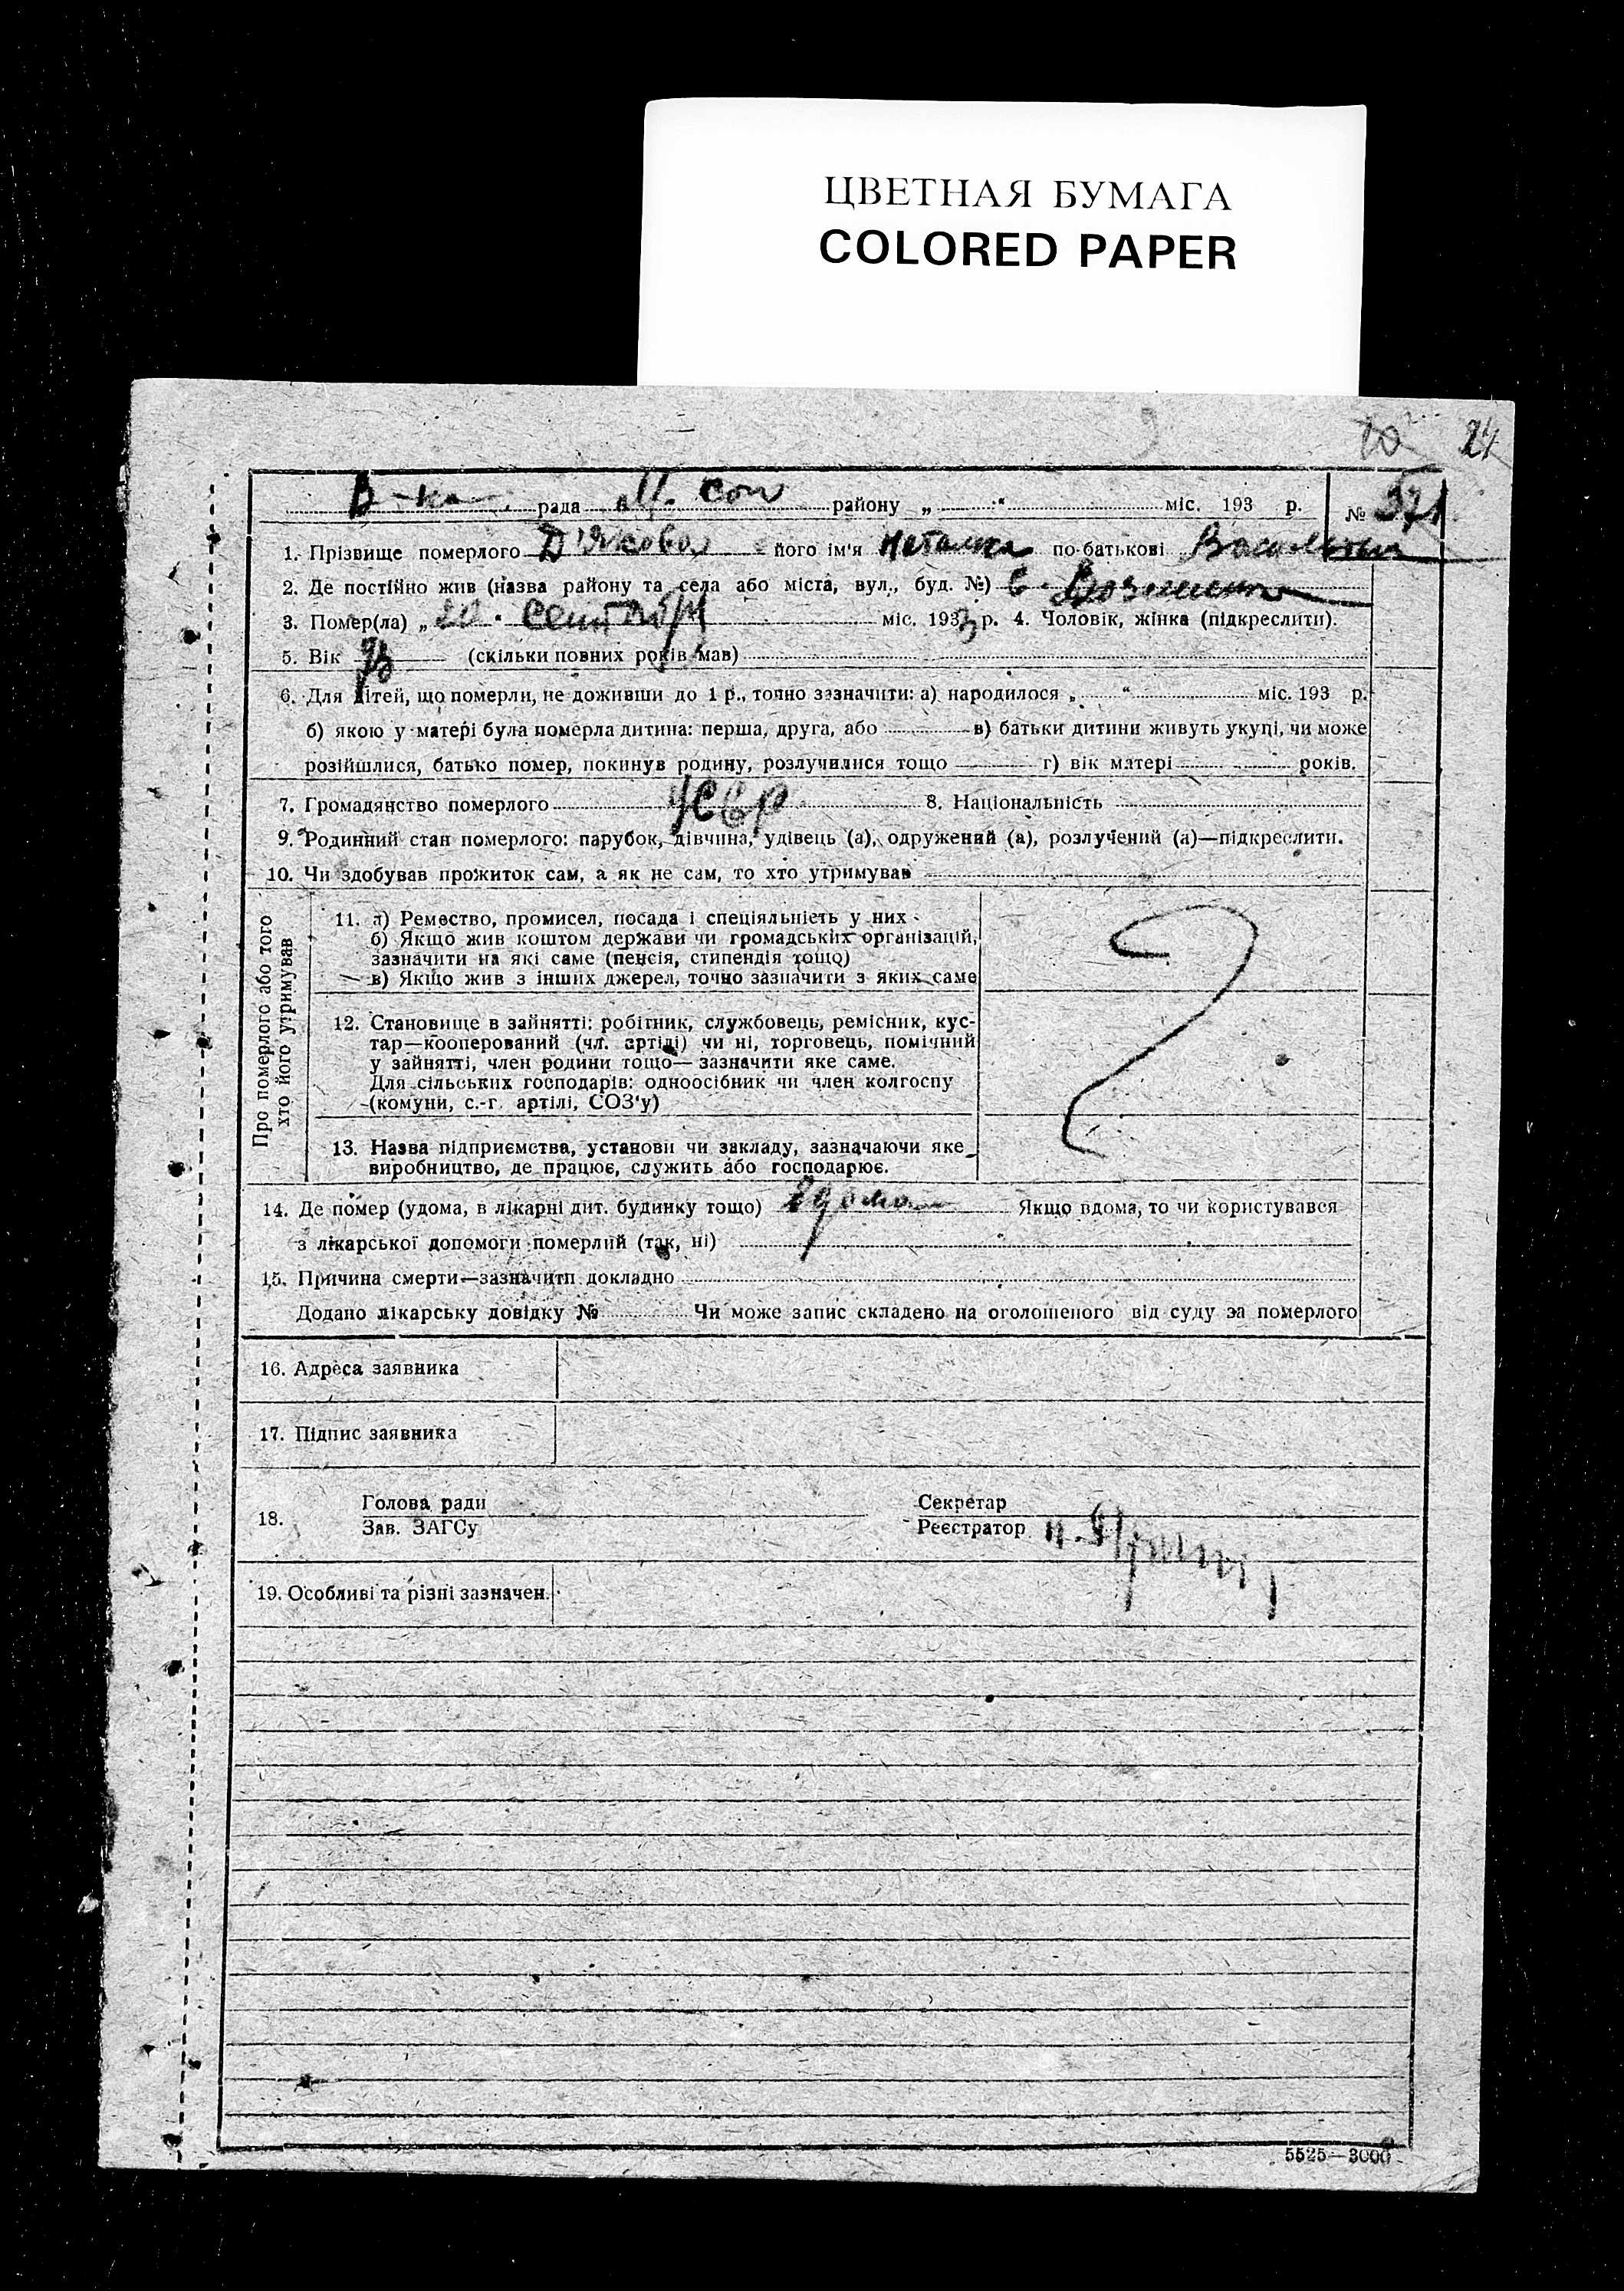 ЦВЕТНАЯ БУМАГА
COLORED PAPER
24
В-ка рада району „ “ міс. 193 р. №
1. Прізвище померлого Д'якова його ім'я Наталка по-батькові
2. Де постійно жив (назва району та села або міста, вул., буд. №) с.
3. Помер(ла) „20“ сентября міс. 1933 р. 4. Чоловік, жінка (підкреслити).
5. Вік (скільки повних років мав)
6. Для дітей, що померли, не доживши до 1 р., точно зазначити: а) народилося „ “ міс. 193 р.
б) якою у матері була померла дитина: перша, друга, або в) батьки дитини живуть укупі, чи може
розійшлися, батько помер, покинув родину, розлучилися тощо г) вік матері років.
7. Громадянство померлого УССР 8. Національність
9. Родинний стан померлого: парубок, дівчина, удівець (а), одружений (а), розлучений (а)—підкреслити.
10. Чи здобував прожиток сам, а як не сам, то хто утримував
Про померлого або того
хто його утримував
11. а) Ремество, промисел, посада і спеціяльність у них
б) Якщо жив коштом держави чи громадських організацій,
зазначити на які саме (пенсія, стипендія тощо)
в) Якщо жив з інших джерел, точно зазначити з яких саме
12. Становище в зайнятті: робітник, службовець, ремісник, кус-
тар—кооперований (чл. артілі) чи ні, торговець, помічний
у зайнятті, член родини тощо— зазначити яке саме.
Для сільських господарів: одноосібник чи член колгоспу
(комуни, с.-г. артілі, СОЗ'у)
13. Назва підприємства, установи чи закладу, зазначаючи яке
виробництво, де працює, служить або господарює.
14. Де помер (удома, в лікарні дит. будинку тощо) вдома Якщо вдома, то чи користувався
з лікарської допомоги померлий (так, ні)
15. Причина смерти—зазначити докладно
Додано лікарську довідку № Чи може запис складено на оголошеного від суду за померлого
16. Адреса заявника
17. Підпис заявника
18. Голова ради Секретар
Зав. ЗАГСу Реєстратор
19. Особливі та різні зазначен.
5525—3000